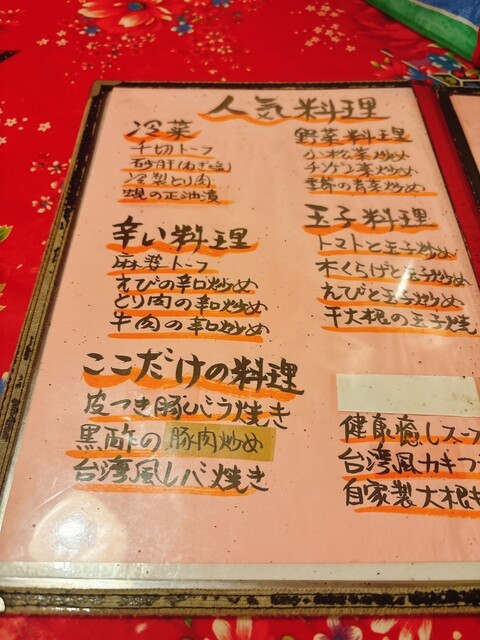 人気料理
冷菜
千切トーフ
砂肝(ねぎ塩)
冷製とり肉
蜆の正油漬
辛い料理
麻婆トーフ
えびの辛口炒め
とり肉の辛口炒め
牛肉の辛口炒め
ここだけの料理
皮つき豚バラ焼き
黒酢の豚肉炒め
台湾風レバ焼き
野菜料理
小松菜炒め
チンゲン菜炒め
季節の青菜炒め
玉子料理
トマトと玉子炒め
木くらげと玉子炒め
えびと玉子炒め
干大根の玉子焼
健康癒しスープ
台湾風カキフ
自家製大根も